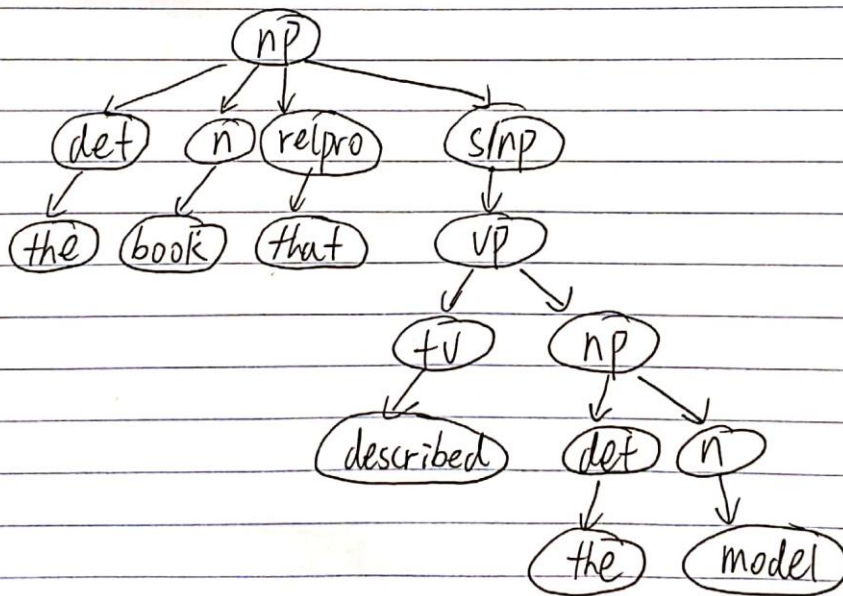 np
det n relpro s/np
the book that vp
tv np
described det n
the model